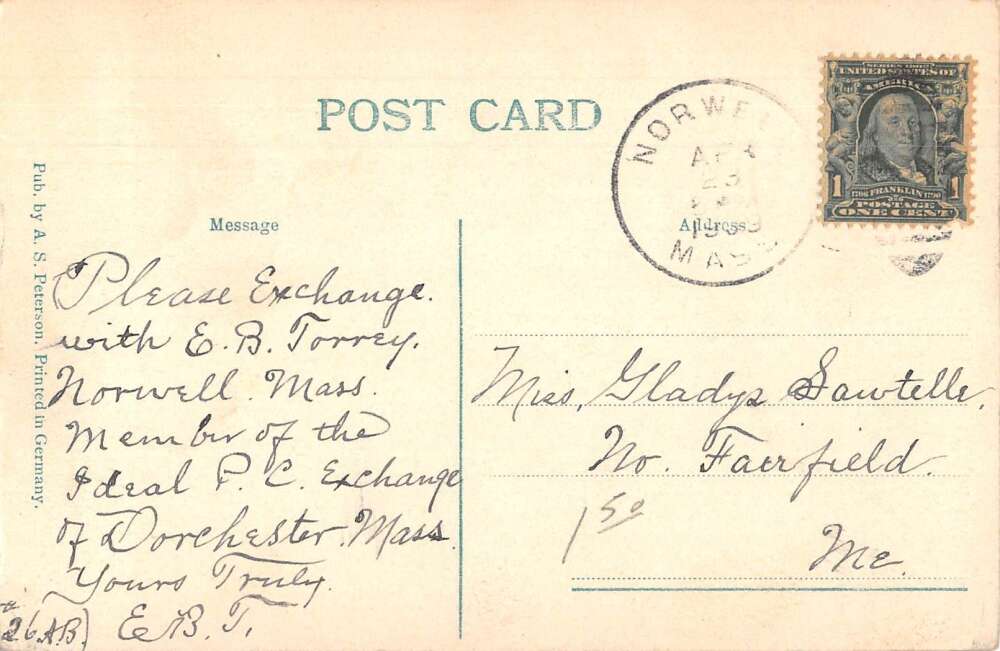 POST CARD
NORWELL
APR
23
1909
MASS
SERIES 1902
UNITED STATES OF
AMERICA
1 1
1706 FRANKLIN 1790
POSTAGE
ONE CENT
Pub. by A. S. Peterson. Printed in Germany.
Message
Please Exchange.
with E. B. Torrey.
Norwell. Mass.
Member of the
Ideal P. C. Exchange
of Dorchester. Mass.
Yours Truly.
E.B.T.
26 A.B.)
Address
Miss. Gladys Sawtelle.
No. Fairfield.
Me.
1 50